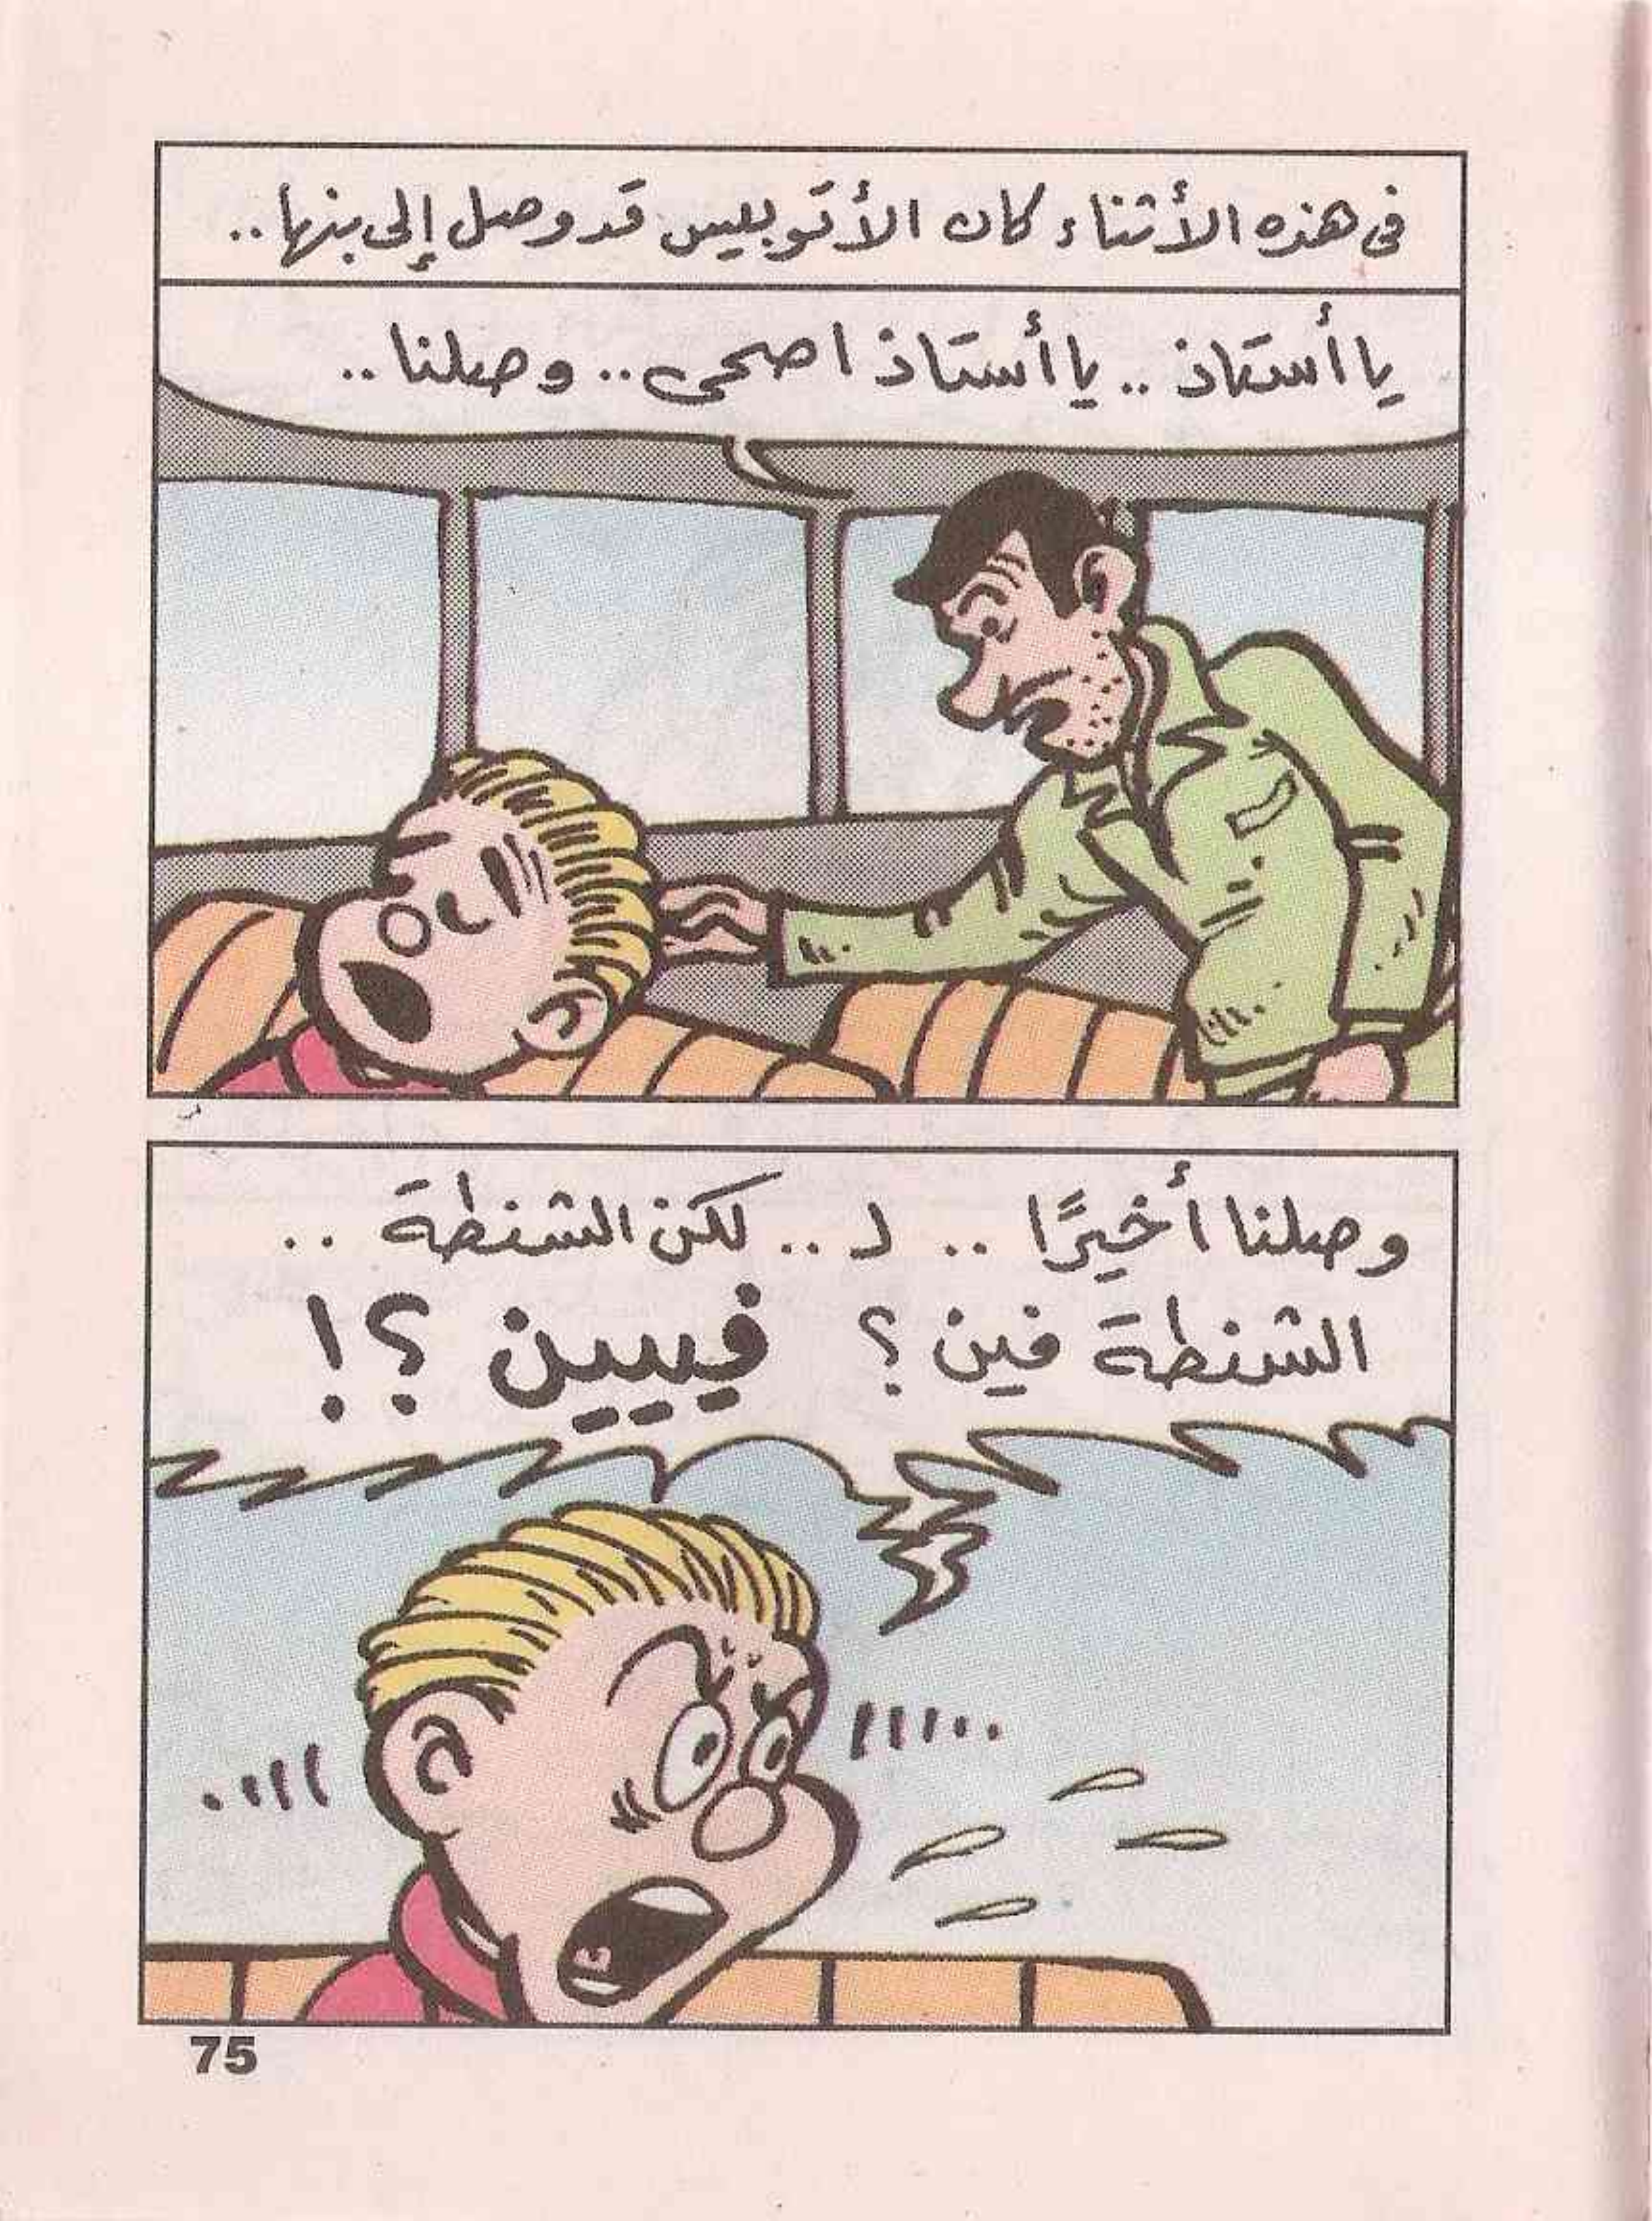 فى هذه الأثناء كان الأتوبيس قد وصل إلى بنها..
يا أستاذ .. يا أستاذ اصحى .. وصلنا ..
وصلنا أخيرًا .. لـ .. لكن الشنطة ..
الشنطة فين ؟ فيييين ؟!
75